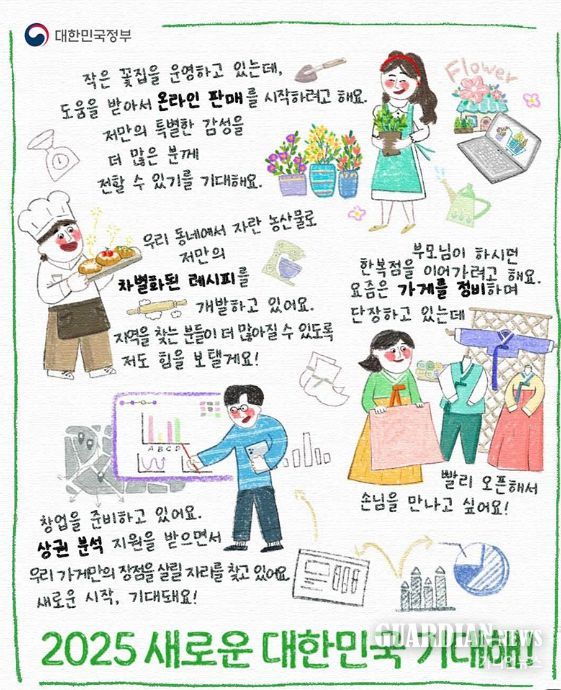 대한민국정부
작은 꽃집을 운영하고 있는데,
도움을 받아서 온라인 판매를 시작하려고 해요.
저만의 특별한 감성을
더 많은 분께
전할 수 있기를 기대해요.
Flower
우리 동네에서 자란 농산물로
저만의
차별화된 레시피를
개발하고 있어요.
지역을 찾는 분들이 더 많아질 수 있도록
저도 힘을 보탤게요!
부모님이 하시던
한복점을 이어가려고 해요.
요즘은 가게를 정비하며
단장하고 있는데
빨리 오픈해서
손님을 만나고 싶어요!
A B C D
창업을 준비하고 있어요.
상권 분석 지원을 받으면서
우리 가게만의 장점을 살릴 자리를 찾고 있어요
새로운 시작, 기대돼요!
GUARDIAN NEWS
2025 새로운 대한민국 기대해!